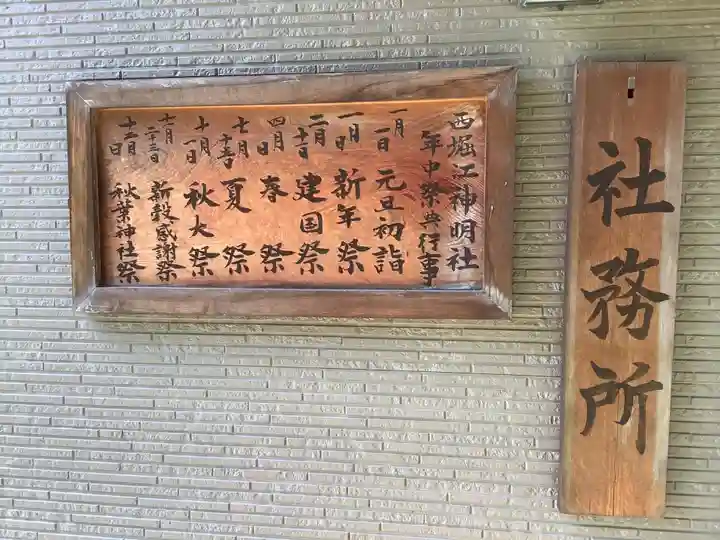 西堀江神明社
年中祭典行事
一月一日 元旦初詣
一月 日 新年祭
二月十一日 建国祭
四月 日 春祭
七月十五日 夏祭
十月 日 秋大祭
十一月二十三日 新穀感謝祭
十二月 日 秋葉神社祭
社務所